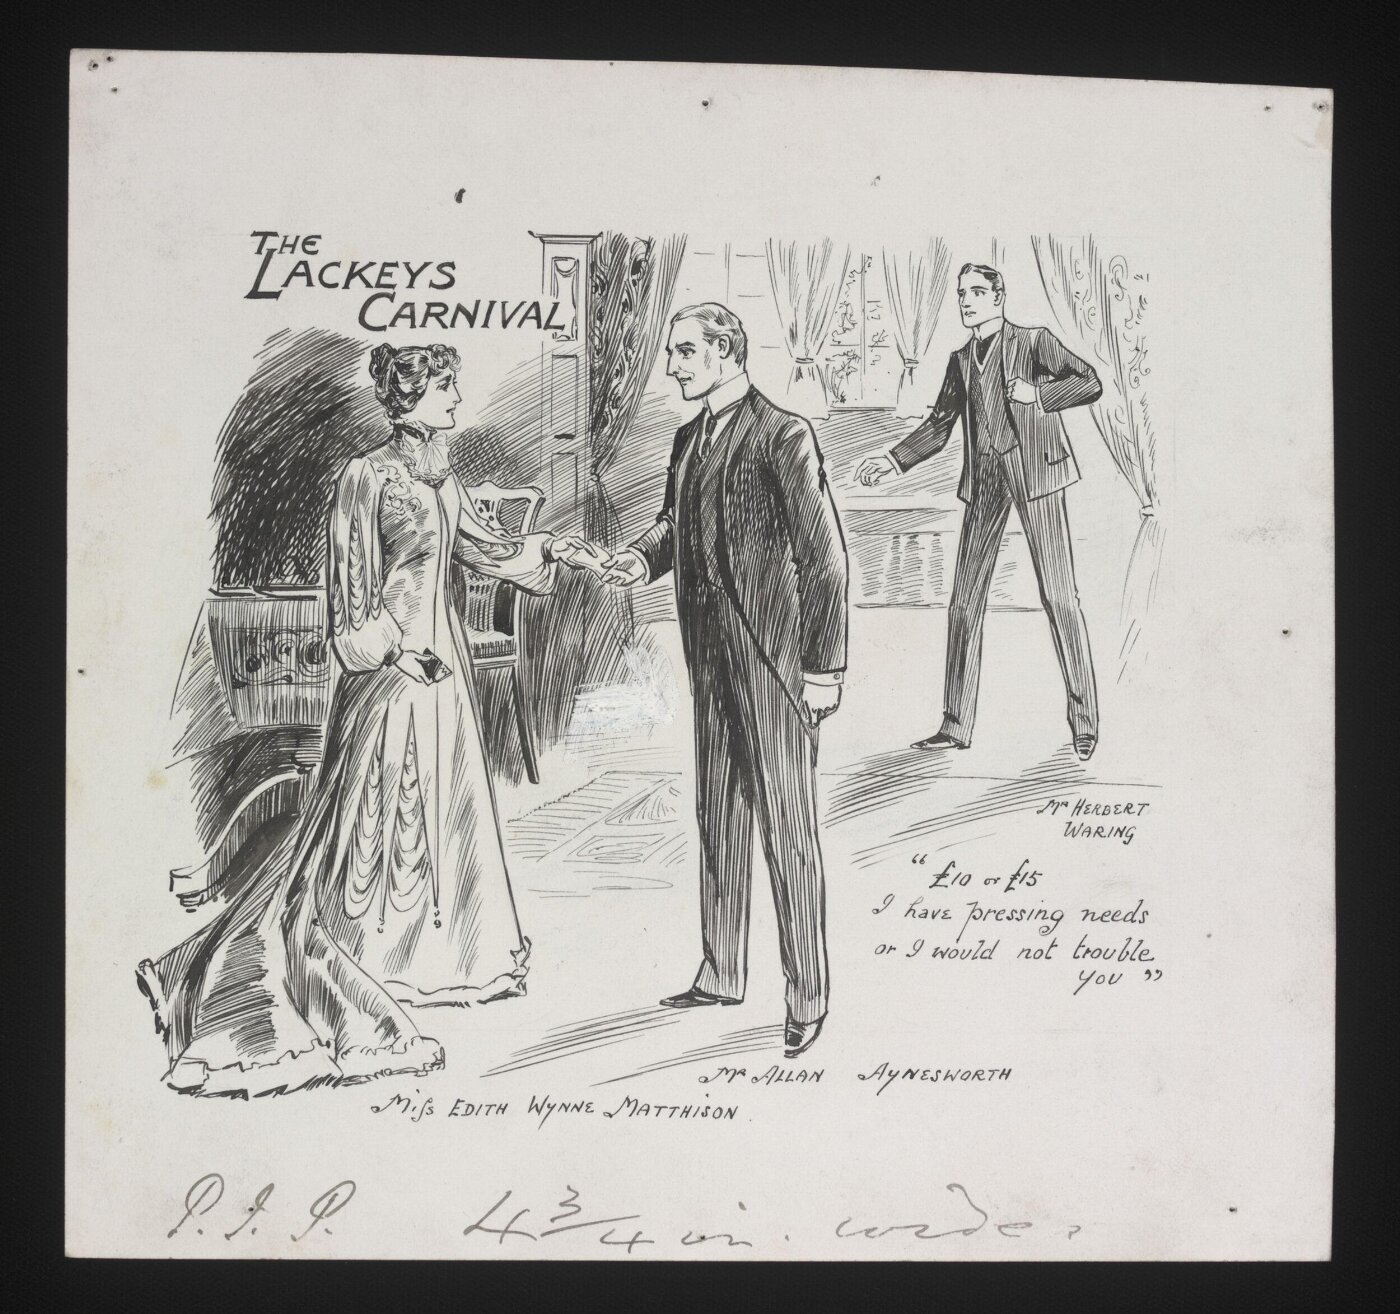 THE
LACKEYS
CARNIVAL
Mr HERBERT
WARING
"£10 or £15
I have pressing needs
or I would not trouble
you"
Mr ALLAN AYNESWORTH
Miss EDITH WYNNE MATTHISON
P.I.P. 4 3/4 in. wide